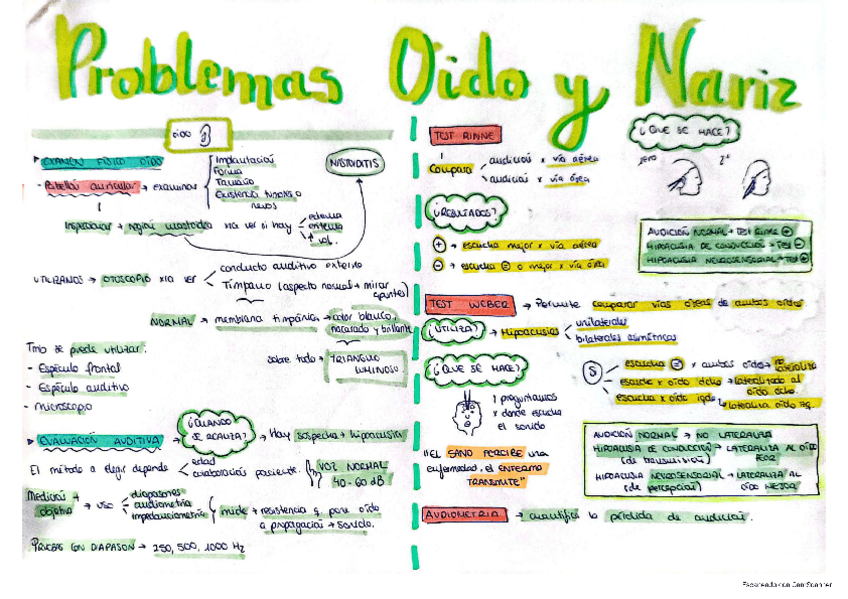 Problemas Oído y Nariz
OÍDO
EXAMEN FÍSICO OÍDO
- Pabellón auricular → examinar
Implantación
Forma
Tamaño
Existencia tumores o
nevos
MASTOIDITIS
Inspeccionar + región mastoidea para ver si hay
edema
eritema
↑ vol.
UTILIZAMOS → OTOSCOPIO para ver
conducto auditivo externo
Tímpano (aspecto normal + mirar
apuntes)
NORMAL → membrana timpánica → color blanco,
nacarado y brillante
sobre todo → TRIANGULO
LUMINOSO
Tmb se puede utilizar:
- Espéculo frontal
- Espéculo auditivo
- microscopio
EVALUACIÓN AUDITIVA → ¿CUANDO
SE REALIZA? → Hay sospecha + hipoacusia
El método a elegir depende
edad
colaboración paciente.
VOZ NORMAL
40-60 dB
Medición +
objetiva → uso
diapasones
audiometría
impedanciometría
mide + resistencia q pone oído
a propagación → sonido.
PRUEBAS CON DIAPASON → 250, 500, 1000 Hz
TEST RINNE
Compara
audición x vía aérea
audición x vía ósea
¿RESULTADOS?
+ → escucha mejor x vía aérea
- → escucha = o mejor x vía ósea
¿QUE SE HACE?
1ero 2º
AUDICIÓN NORMAL → TEST RINNE +
HIPOACUSIA DE CONDUCCIÓN → TEST -
HIPOACUSIA NEUROSENSORIAL → TEST +
TEST WEBER → Permite comparar vías óseas de ambos oídos
¿UTILIZA? → Hipoacusias
unilaterales
bilaterales asimétricas
¿QUE SE HACE?
preguntamos
x donde escucha
el sonido
S
escucha = x ambos oídos → no
lateraliza
escucha x oído dcho → lateralizado al
oído dcho.
escucha x oído izqdo → lateraliza oído izq.
"EL SANO PERCIBE una
enfermedad, el ENFERMO
TRANSMITE"
AUDICIÓN NORMAL → NO LATERALIZA
HIPOACUSIA DE CONDUCCIÓN → LATERALIZA AL OÍDO
(de transmisión) PEOR
HIPOACUSIA NEUROSENSORIAL → LATERALIZA AL
(de percepción) OÍDO MEJOR
AUDIOMETRIA → cuantifica la pérdida de audición.
Escaneado con CamScanner